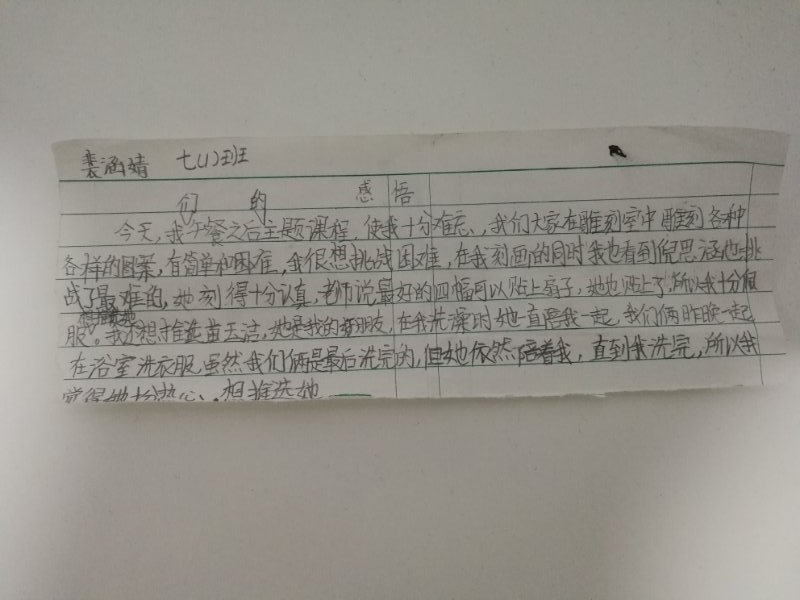 裴涵婧 七(1)班
们的感悟
今天,我午餐之后主题课程,使我十分难忘,我们大家在雕刻室中雕刻各种
各样的图案,有简单和困难,我很想挑战困难,在我刻画的同时我也看到倪思涵也挑
战了最难的,她刻得十分认真,老师说最好的四幅可以贴上扇子,她也贴上了,所以我十分佩
服。想推选她
我还想推选苗玉洁,她是我的好朋友,在我洗澡时她一直陪我一起,我们俩昨晚一起
在浴室洗衣服,虽然我们俩是最后洗完的,但她依然陪着我,直到我洗完,所以我
觉得她十分热心,想推选她